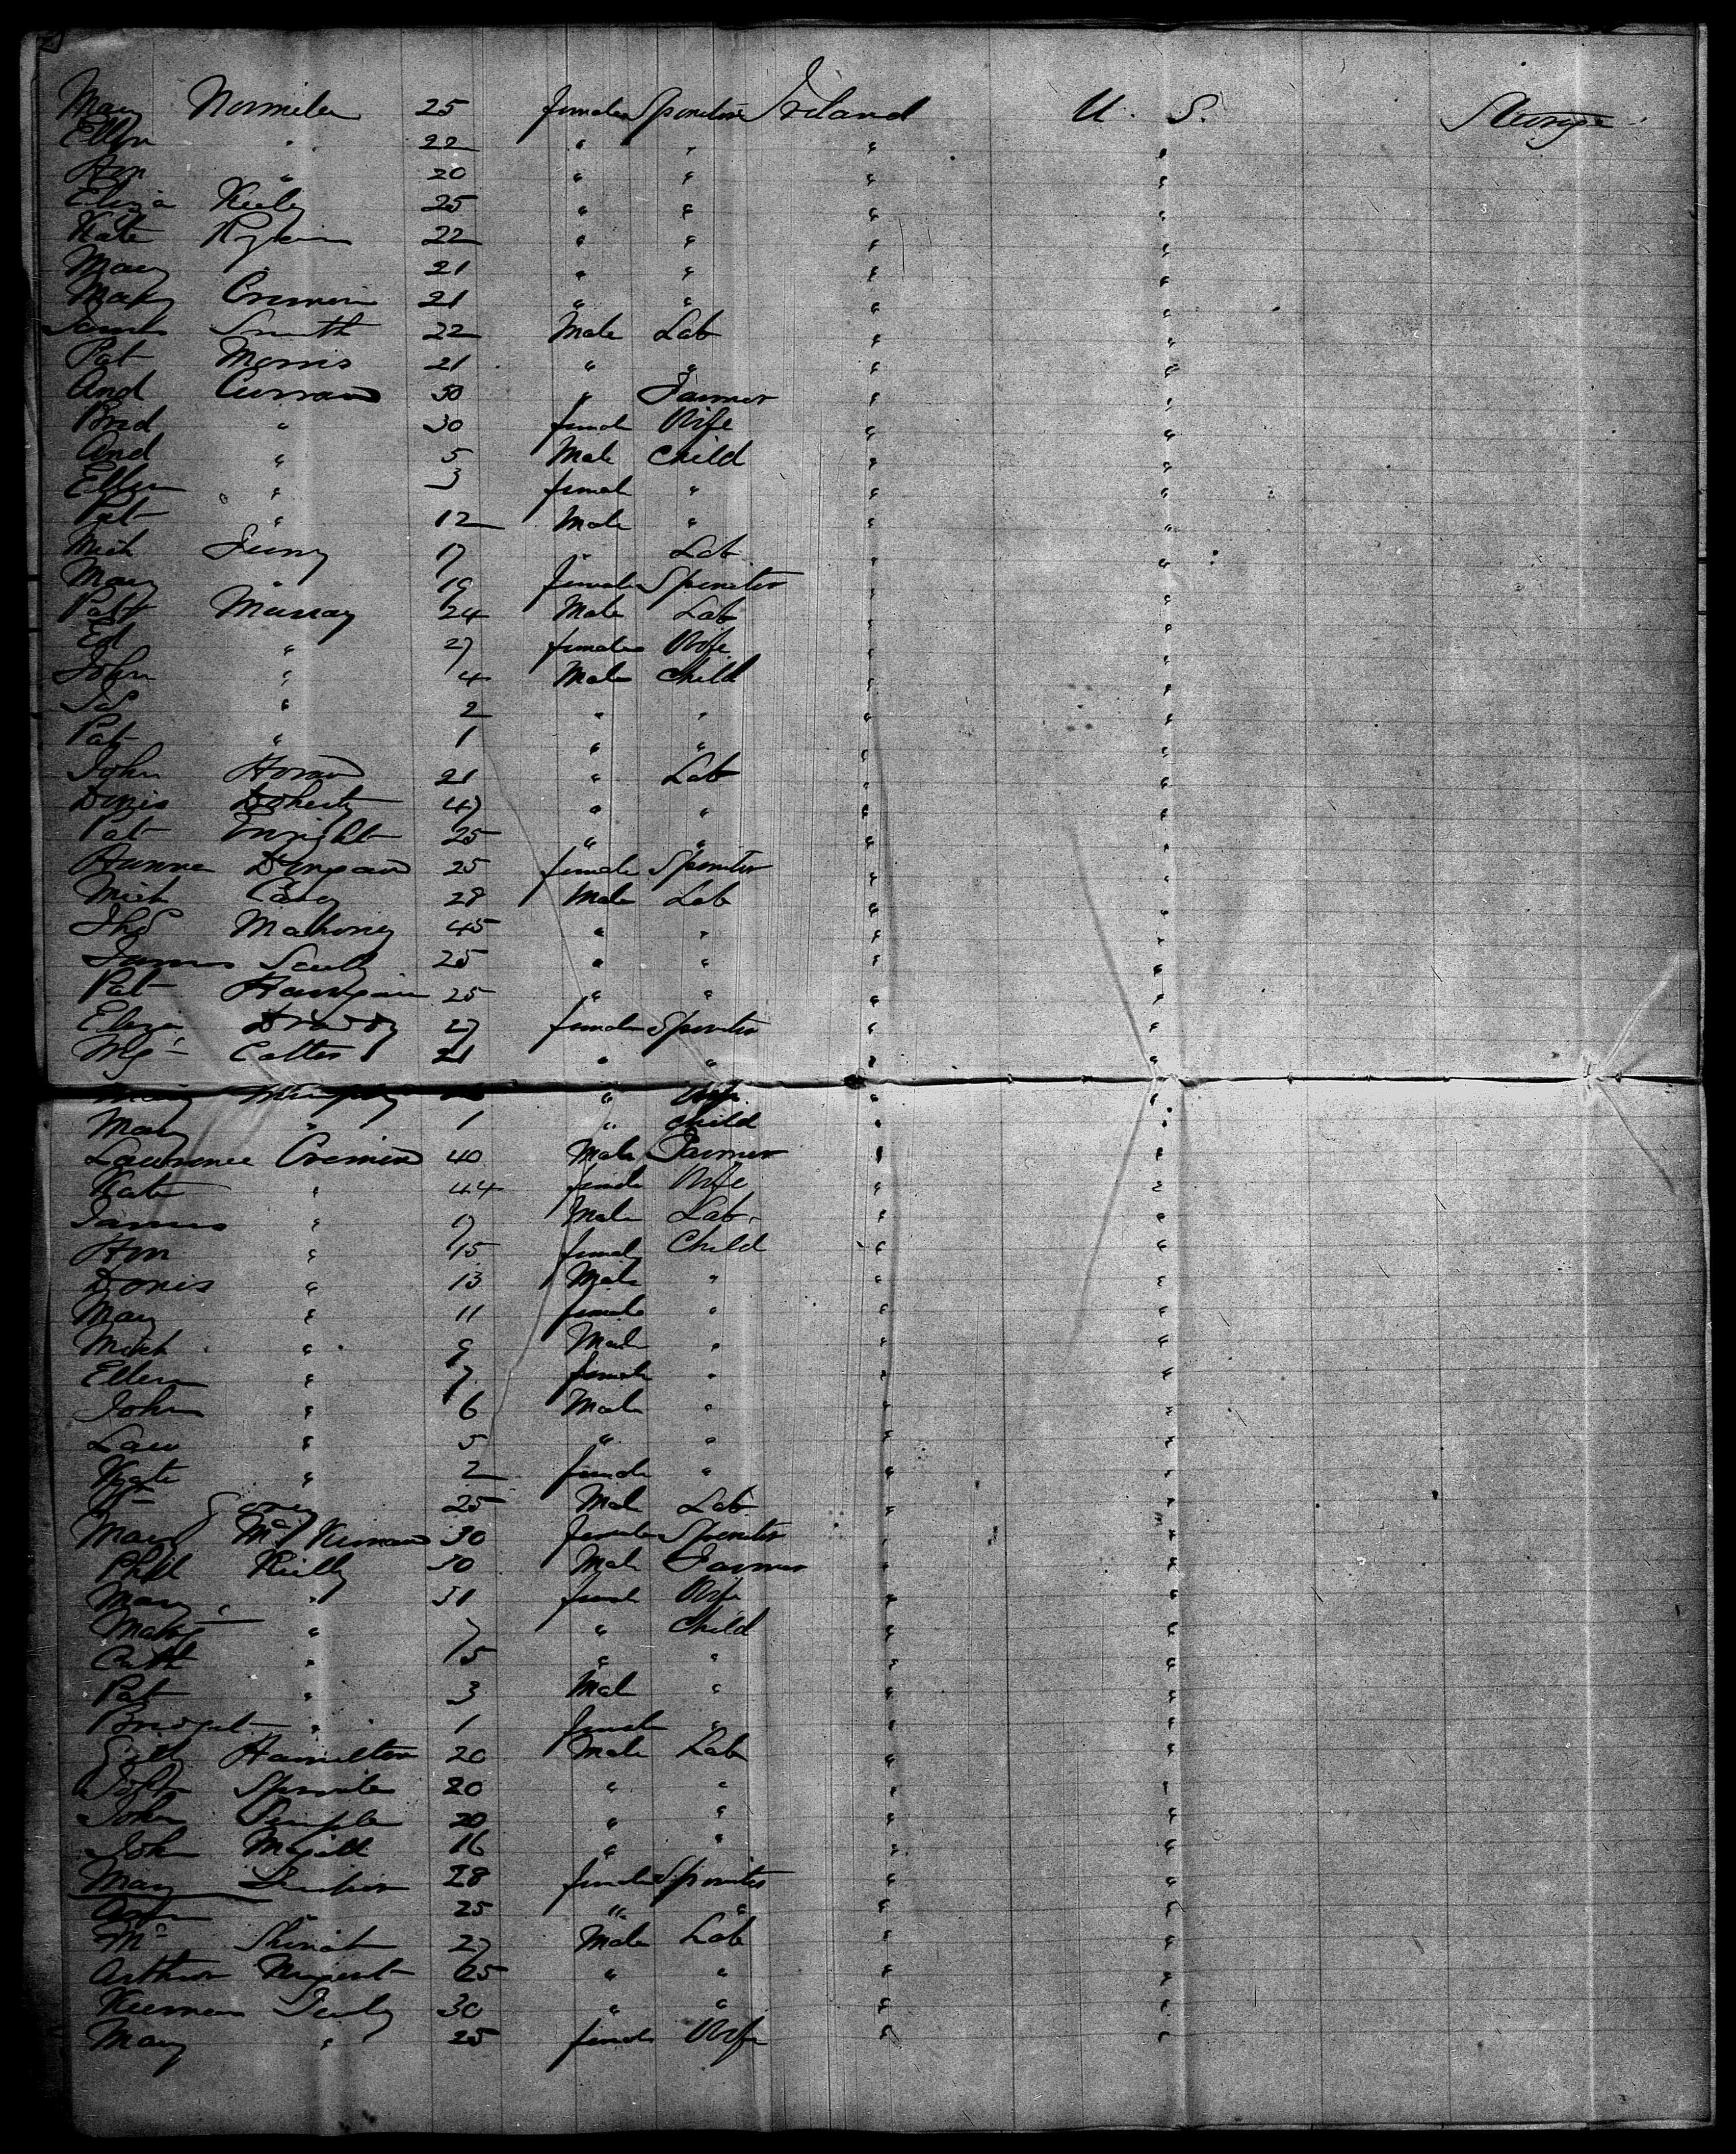 Mary Normile 25 female Spinster Ireland U. S. Steerage
Ellen " 22 " " " "
Hon " 20 " " " "
Eliza Kiely 25 " " " "
Kate 22 " " " "
Mary " 21 " " " "
Mary Cremin 21 " " " "
James Smith 22 Male Lab " "
Pat Morris 21 " " " "
And Curran 30 " Farmer " "
Brid " 30 female Wife " "
And " 5 Male Child " "
Ellen " 3 female " " "
Pat " 12 Male " " "
Mich 17 " Lab " "
Mary " 19 female Spinster " "
Patk Murray 24 Male Lab " "
Ed " 27 female Wife " "
John " 4 Male Child " "
" 2 " " " "
Pat " 1 " " " "
John Horan 21 " Lab " "
Denis Doherty 47 " " " "
Pat Enright 25 " " " "
Hanna 25 female Spinster " "
Mich Casey 28 Male Lab " "
Thos Mahoney 45 " " " "
James Scully 25 " " " "
Pat Hannigan 25 " " " "
Eliza 27 female Spinster " "
Mgt Cotter 21 " " " "
Mary Murphy " Wife " "
Mary " 1 " Child " "
Lawrence Cremin 40 Male Farmer " "
Kate " 44 female Wife " "
James " 17 Male Lab. " "
Hon " 15 female Child " "
Denis " 13 Male " " "
Mary " 11 female " " "
Mich " 9 Male " " "
Ellen " 7 female " " "
John " 6 Male " " "
Law " 5 " " " "
Kate " 2 female " " "
Wm 25 Male Lab " "
Mary McKiernan 30 female Spinster " "
Phil Reilly 30 Male Farmer " "
Mary " 31 female Wife " "
" 7 " Child " "
Cath " 5 " " " "
Pat " 3 Male " " "
Bridget " 1 female " " "
Hamilton 20 Male Lab " "
John 20 " " " "
John Temple 20 " " " "
John Magill 16 " " " "
Mary 28 female Spinster " "
Ann " 25 " " " "
27 Male Lab " "
Arthur Nugent 25 " " " "
30 " " " "
Mary " 25 female Wife " "